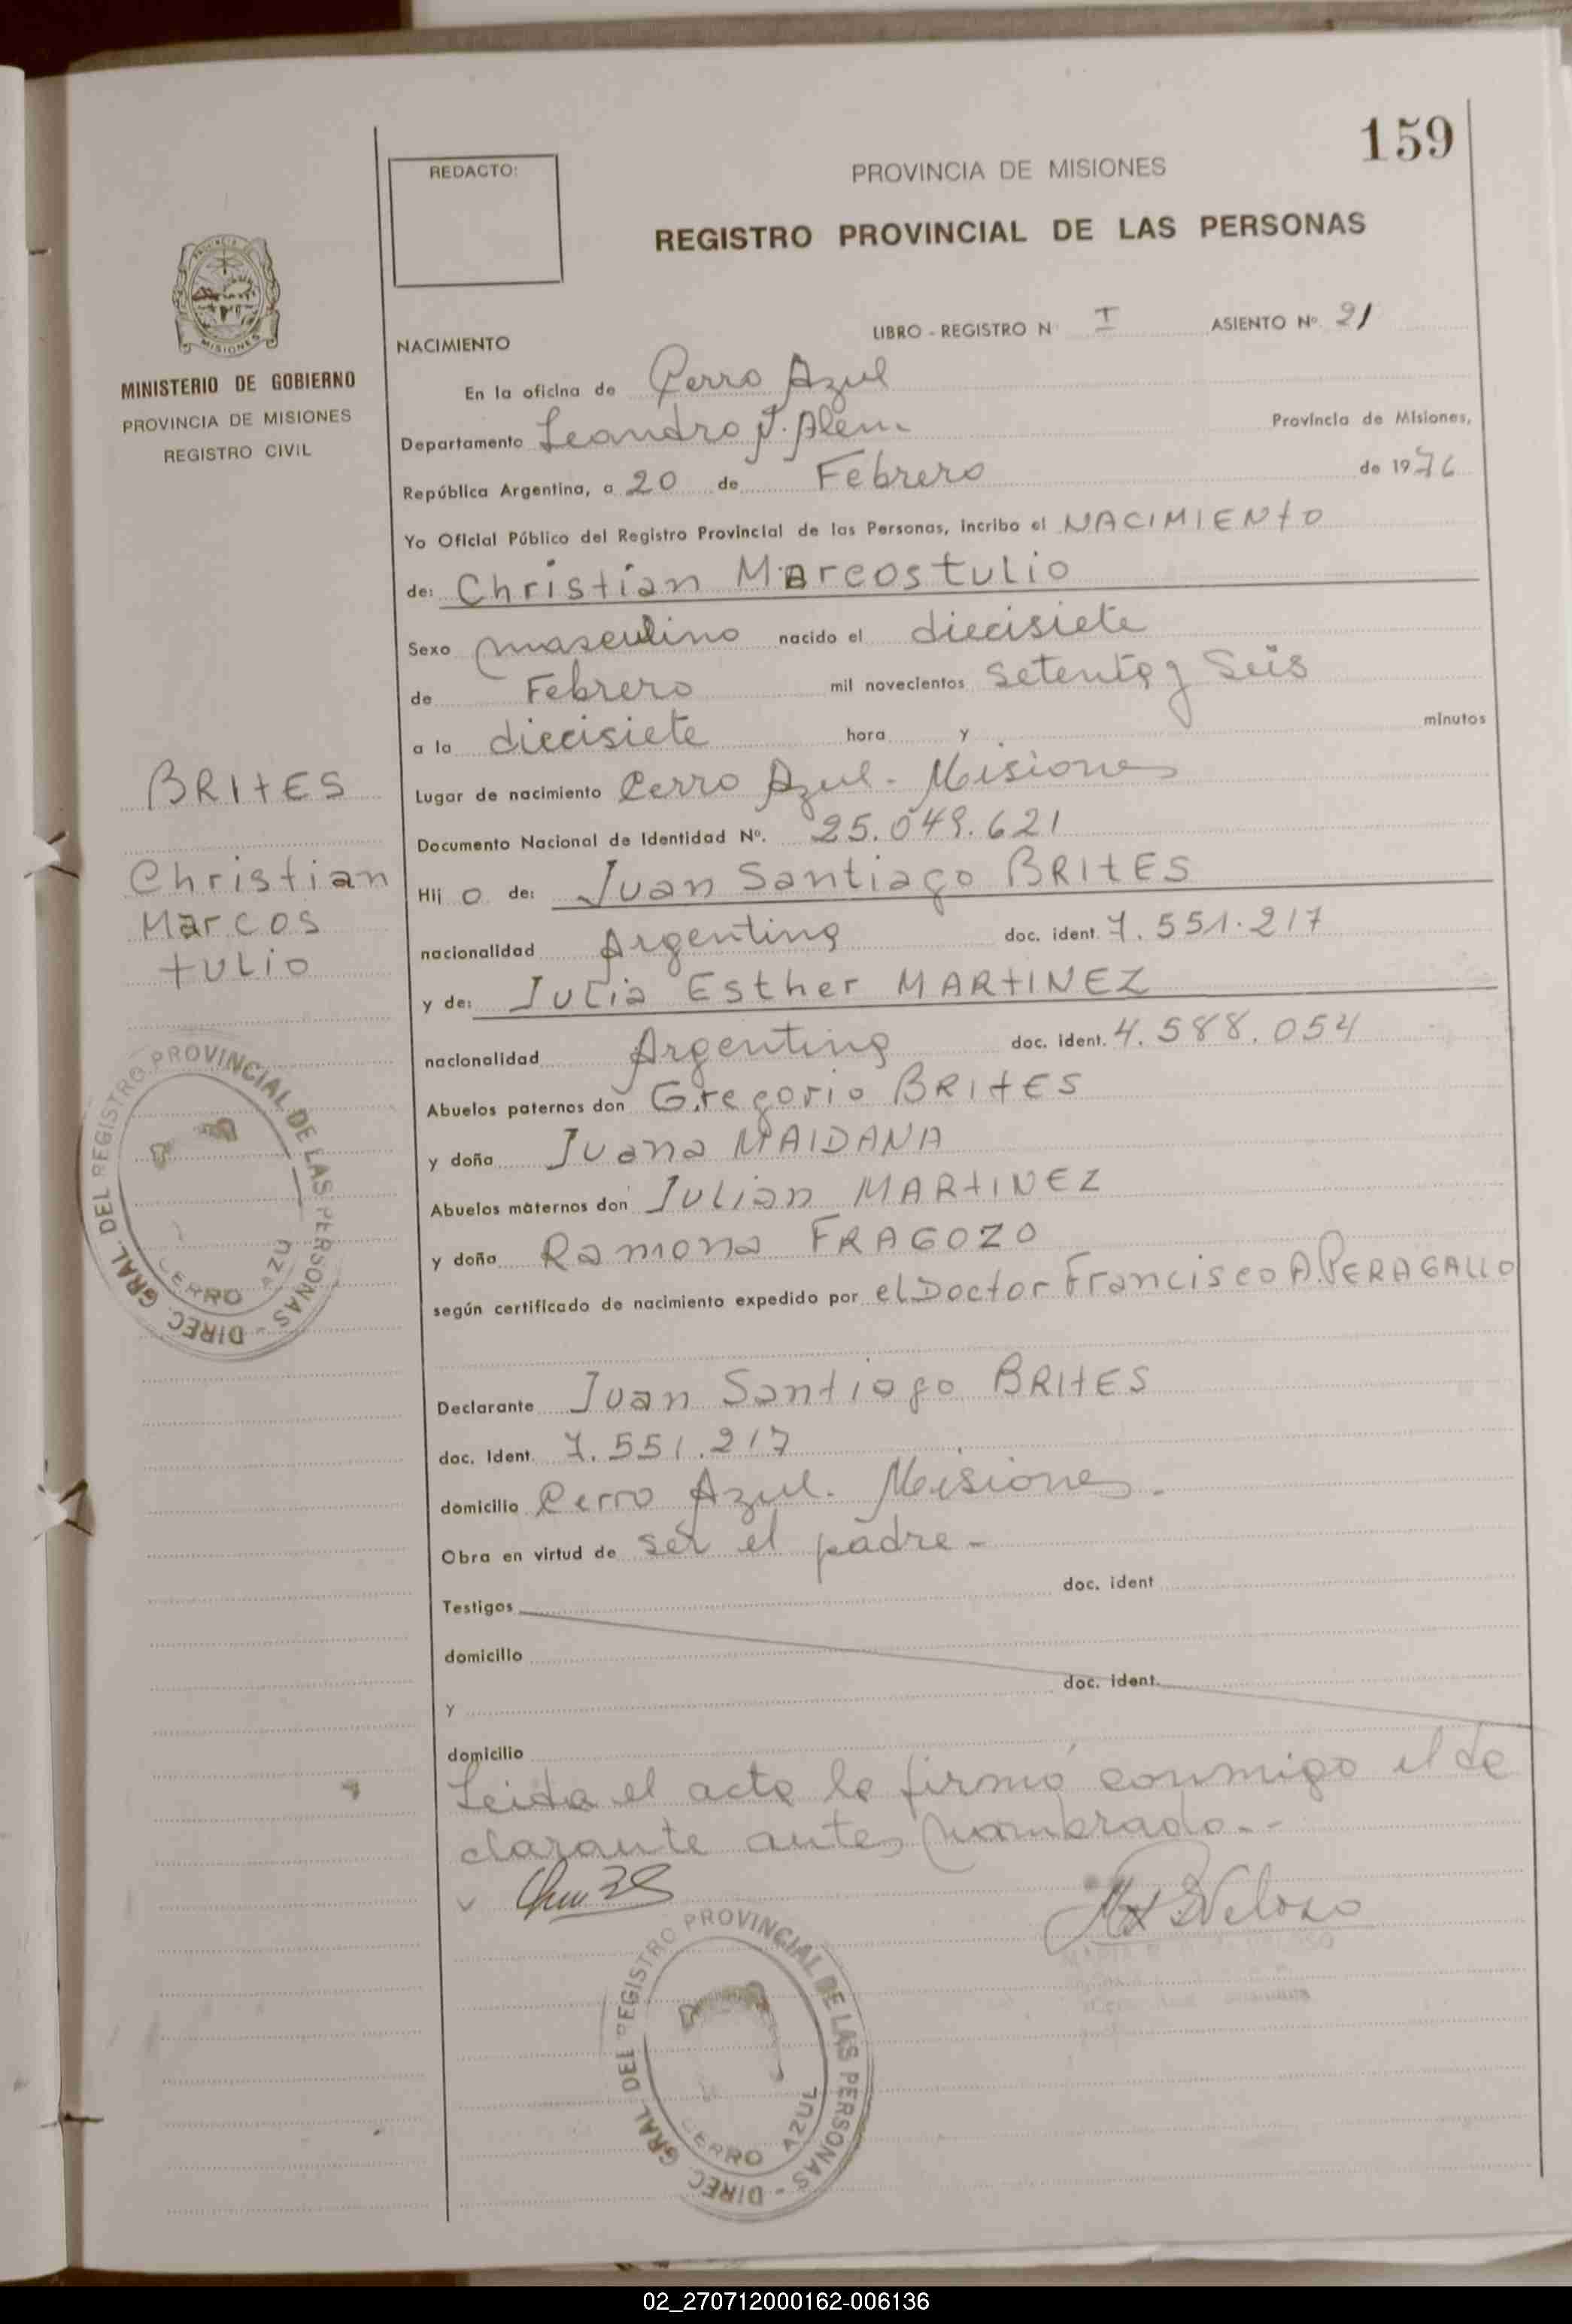 159
REDACTO:
PROVINCIA DE MISIONES
REGISTRO PROVINCIAL DE LAS PERSONAS
MINISTERIO DE GOBIERNO
PROVINCIA DE MISIONES
REGISTRO CIVIL
NACIMIENTO LIBRO - REGISTRO N I ASIENTO Nº 21
En la oficina de Cerro Azul
Departamento Leandro N. Alem Provincia de Misiones,
República Argentina, a 20 de Febrero de 1976
Yo Oficial Público del Registro Provincial de las Personas, incribo el NACIMIENTO
de: Christian Marcostulio
Sexo masculino nacido el diecisiete
de Febrero mil novecientos setenta y seis
a la diecisiete hora y minutos
Lugar de nacimiento Cerro Azul - Misiones
Documento Nacional de Identidad Nº. 25.049.621
Hij o de: Juan Santiago BRITES
nacionalidad Argentina doc. ident. 7.551.217
y de: Julia Esther MARTINEZ
nacionalidad Argentina doc. ident. 4.588.054
Abuelos paternos don Gregorio BRITES
y doña Juana MAIDANA
Abuelos maternos don Julian MARTINEZ
y doña Ramona FRAGOZO
según certificado de nacimiento expedido por el Doctor Francisco A. PERAGALLO
Declarante Juan Santiago BRITES
doc. Ident. 7.551.217
domicilio Cerro Azul. Misiones.
Obra en virtud de ser el padre -
Testigos doc. ident
domicilio
y doc. ident.
domicilio
Leida el acta la firmó conmigo el de
clarante antes nombrado. -
Veloso
BRITES
Christian
Marcos
tulio
DIREC. GRAL. DEL REGISTRO PROVINCIAL DE LAS PERSONAS -
CERRO AZUL
DIREC. GRAL. DEL REGISTRO PROVINCIAL DE LAS PERSONAS -
CERRO AZUL
MISIONES
02_270712000162-006136